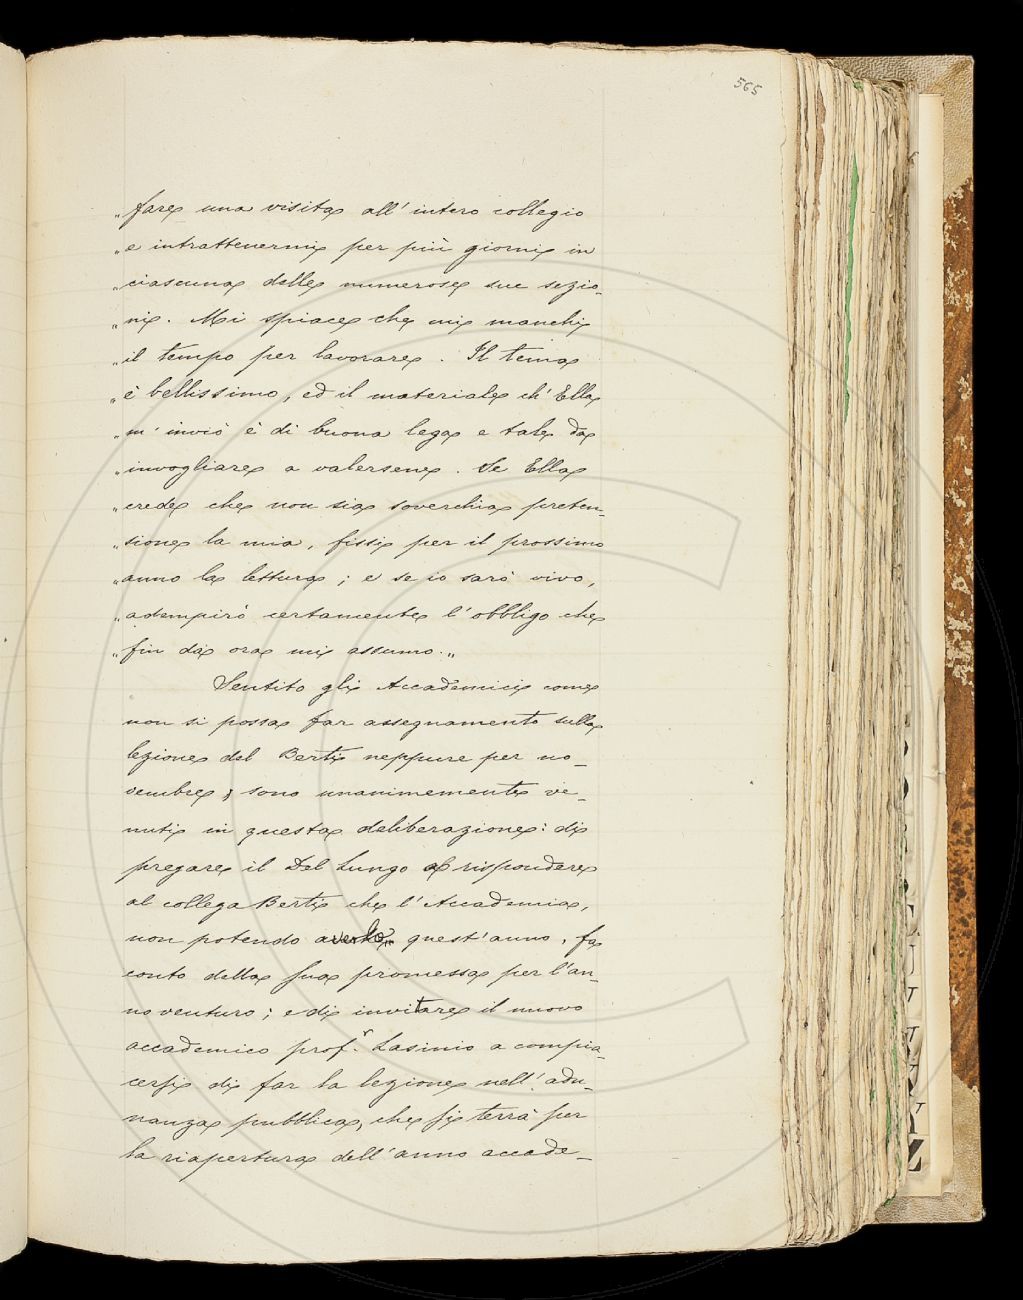 565
„fare una visita all' intero collegio
„e intrattenermi per più giorni in
„ciascuna delle numerose sue sezio-
„ni. Mi spiace che mi manchi
„il tempo per lavorare. Il tema
„è bellissimo, ed il materiale ch' Ella
„m' inviò è di buona lega e tale da
„invogliare a valersene. Se Ella
„crede che non sia soverchia preten-
„sione la mia, fissi per il prossimo
„anno la lettura; e se io sarò vivo,
„adempirò certamente l' obbligo che
„fin da ora mi assumo.„
Sentito gli Accademici come
non si possa far assegnamento sulla
lezione del Berti neppure per no-
vembre, sono unanimemente ve-
nuti in questa deliberazione: di
pregare il Del Lungo a rispondere
al collega Berti che l' Accademia,
non potendo averlo quest' anno, fa
conto della sua promessa per l' an-
no venturo; e di invitare il nuovo
accademico prof.r Lasinio a compia-
cersi di far la lezione nell' adu-
nanza pubblica, che si terrà per
la riapertura dell' anno accade-